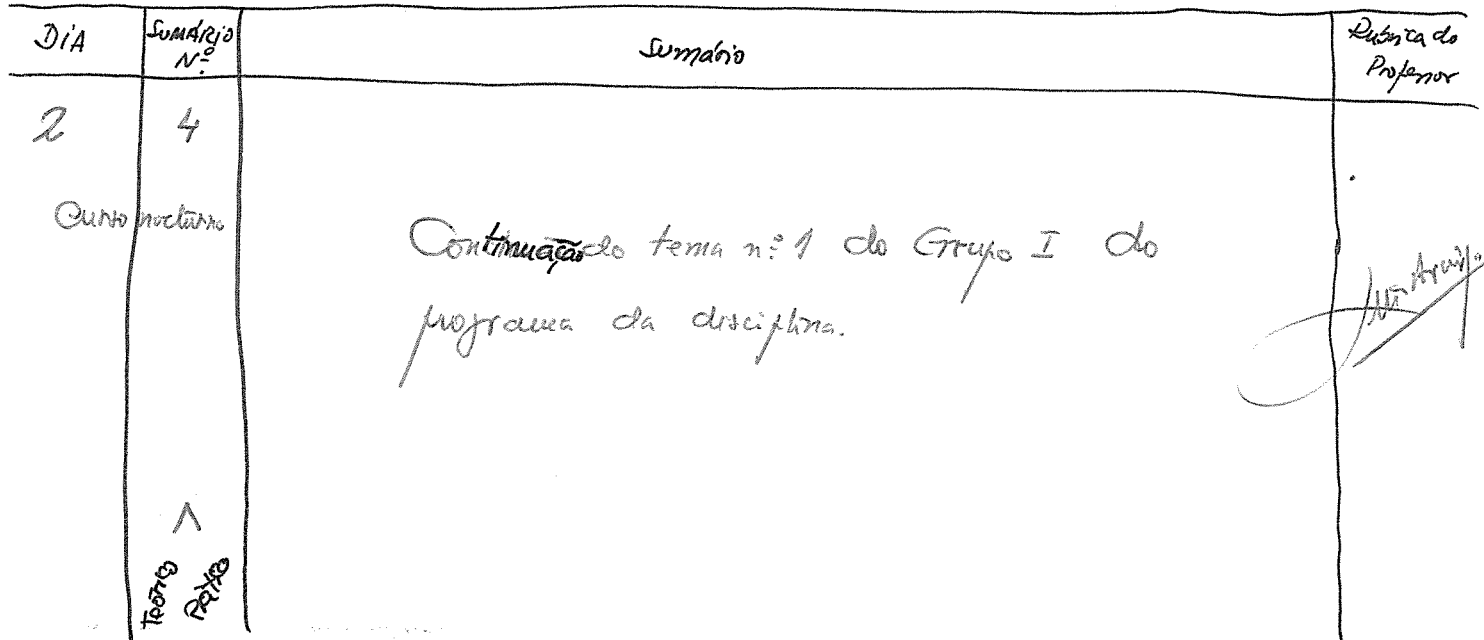 DIA
SUMÁRIO Nº
Sumário
Rubrica do
Professor
2
4
Curso nocturno
Continuação do tema n.º 1 do Grupo I do
programa da disciplina.
Araújo
Teórico
Prático